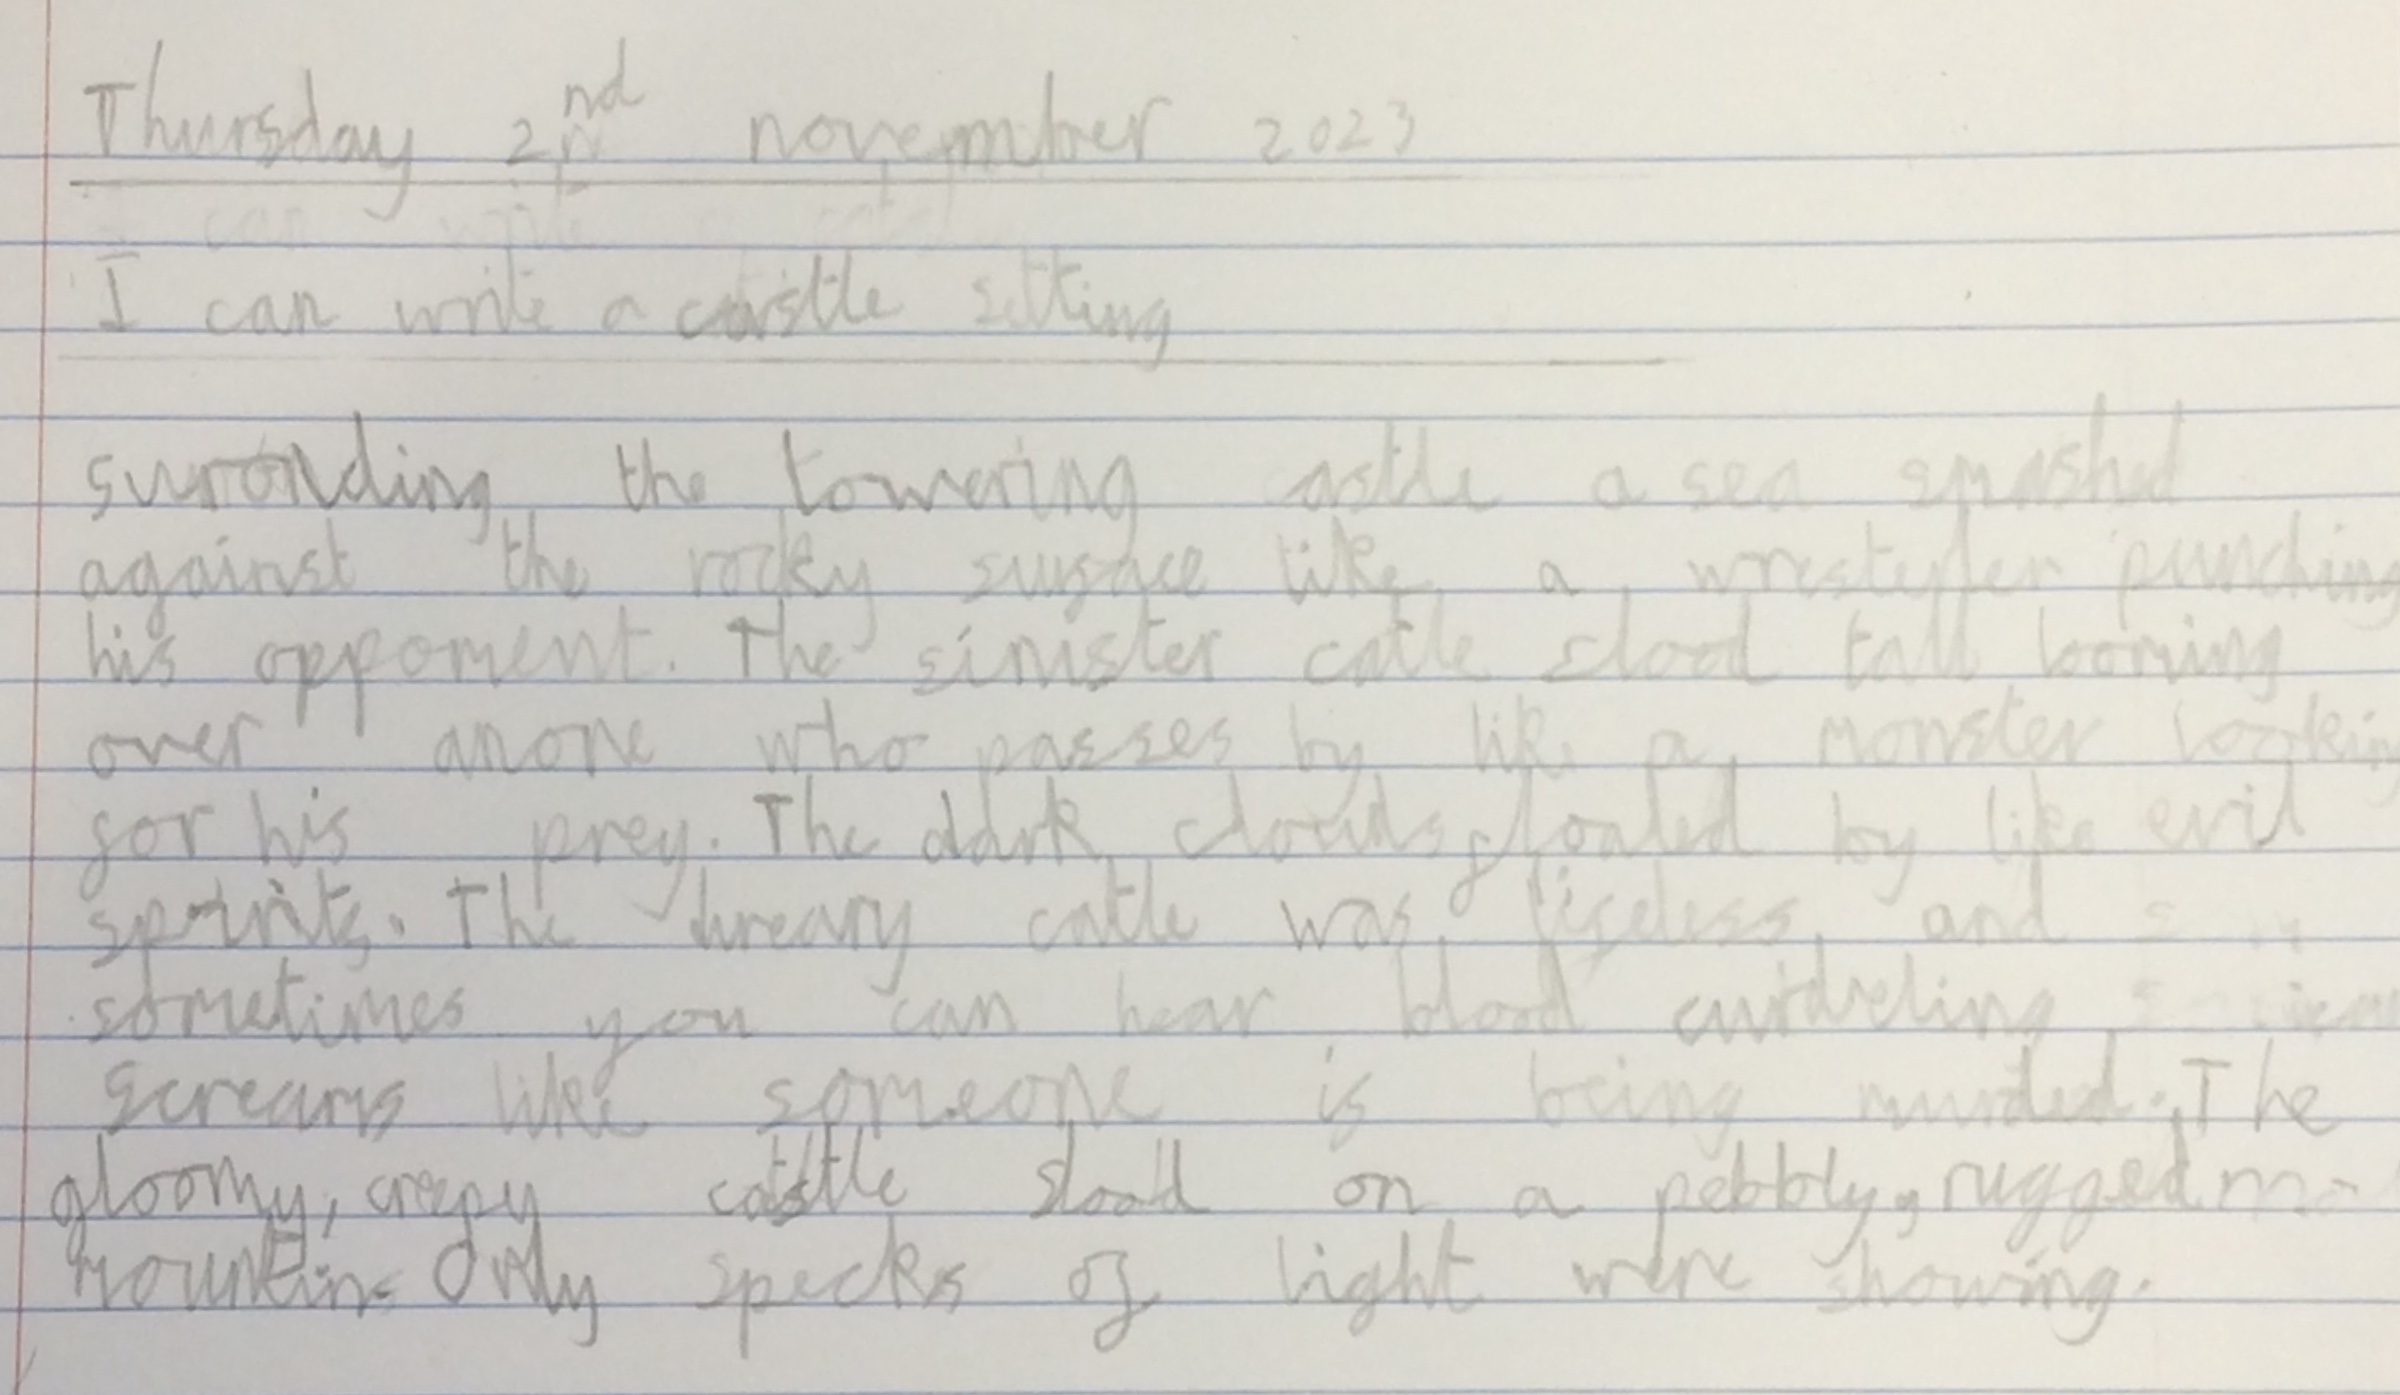 Thursday 2nd november 2023
I can write a castle setting
surronding the towering castle a sea smashed
against the rocky surface like a wrestyler punching
his opponent. The sinister catle stood tall looming
over anone who passes by like a monster looking
for his prey. The dark clouds floated by like evil
spirits. The dreary catle was lifeless and
sometimes you can hear blood curdveling
screams like someone is being murded. The
gloomy, creepy castle stood on a pebbly, rugged
mountin. Only specks of light were showing.